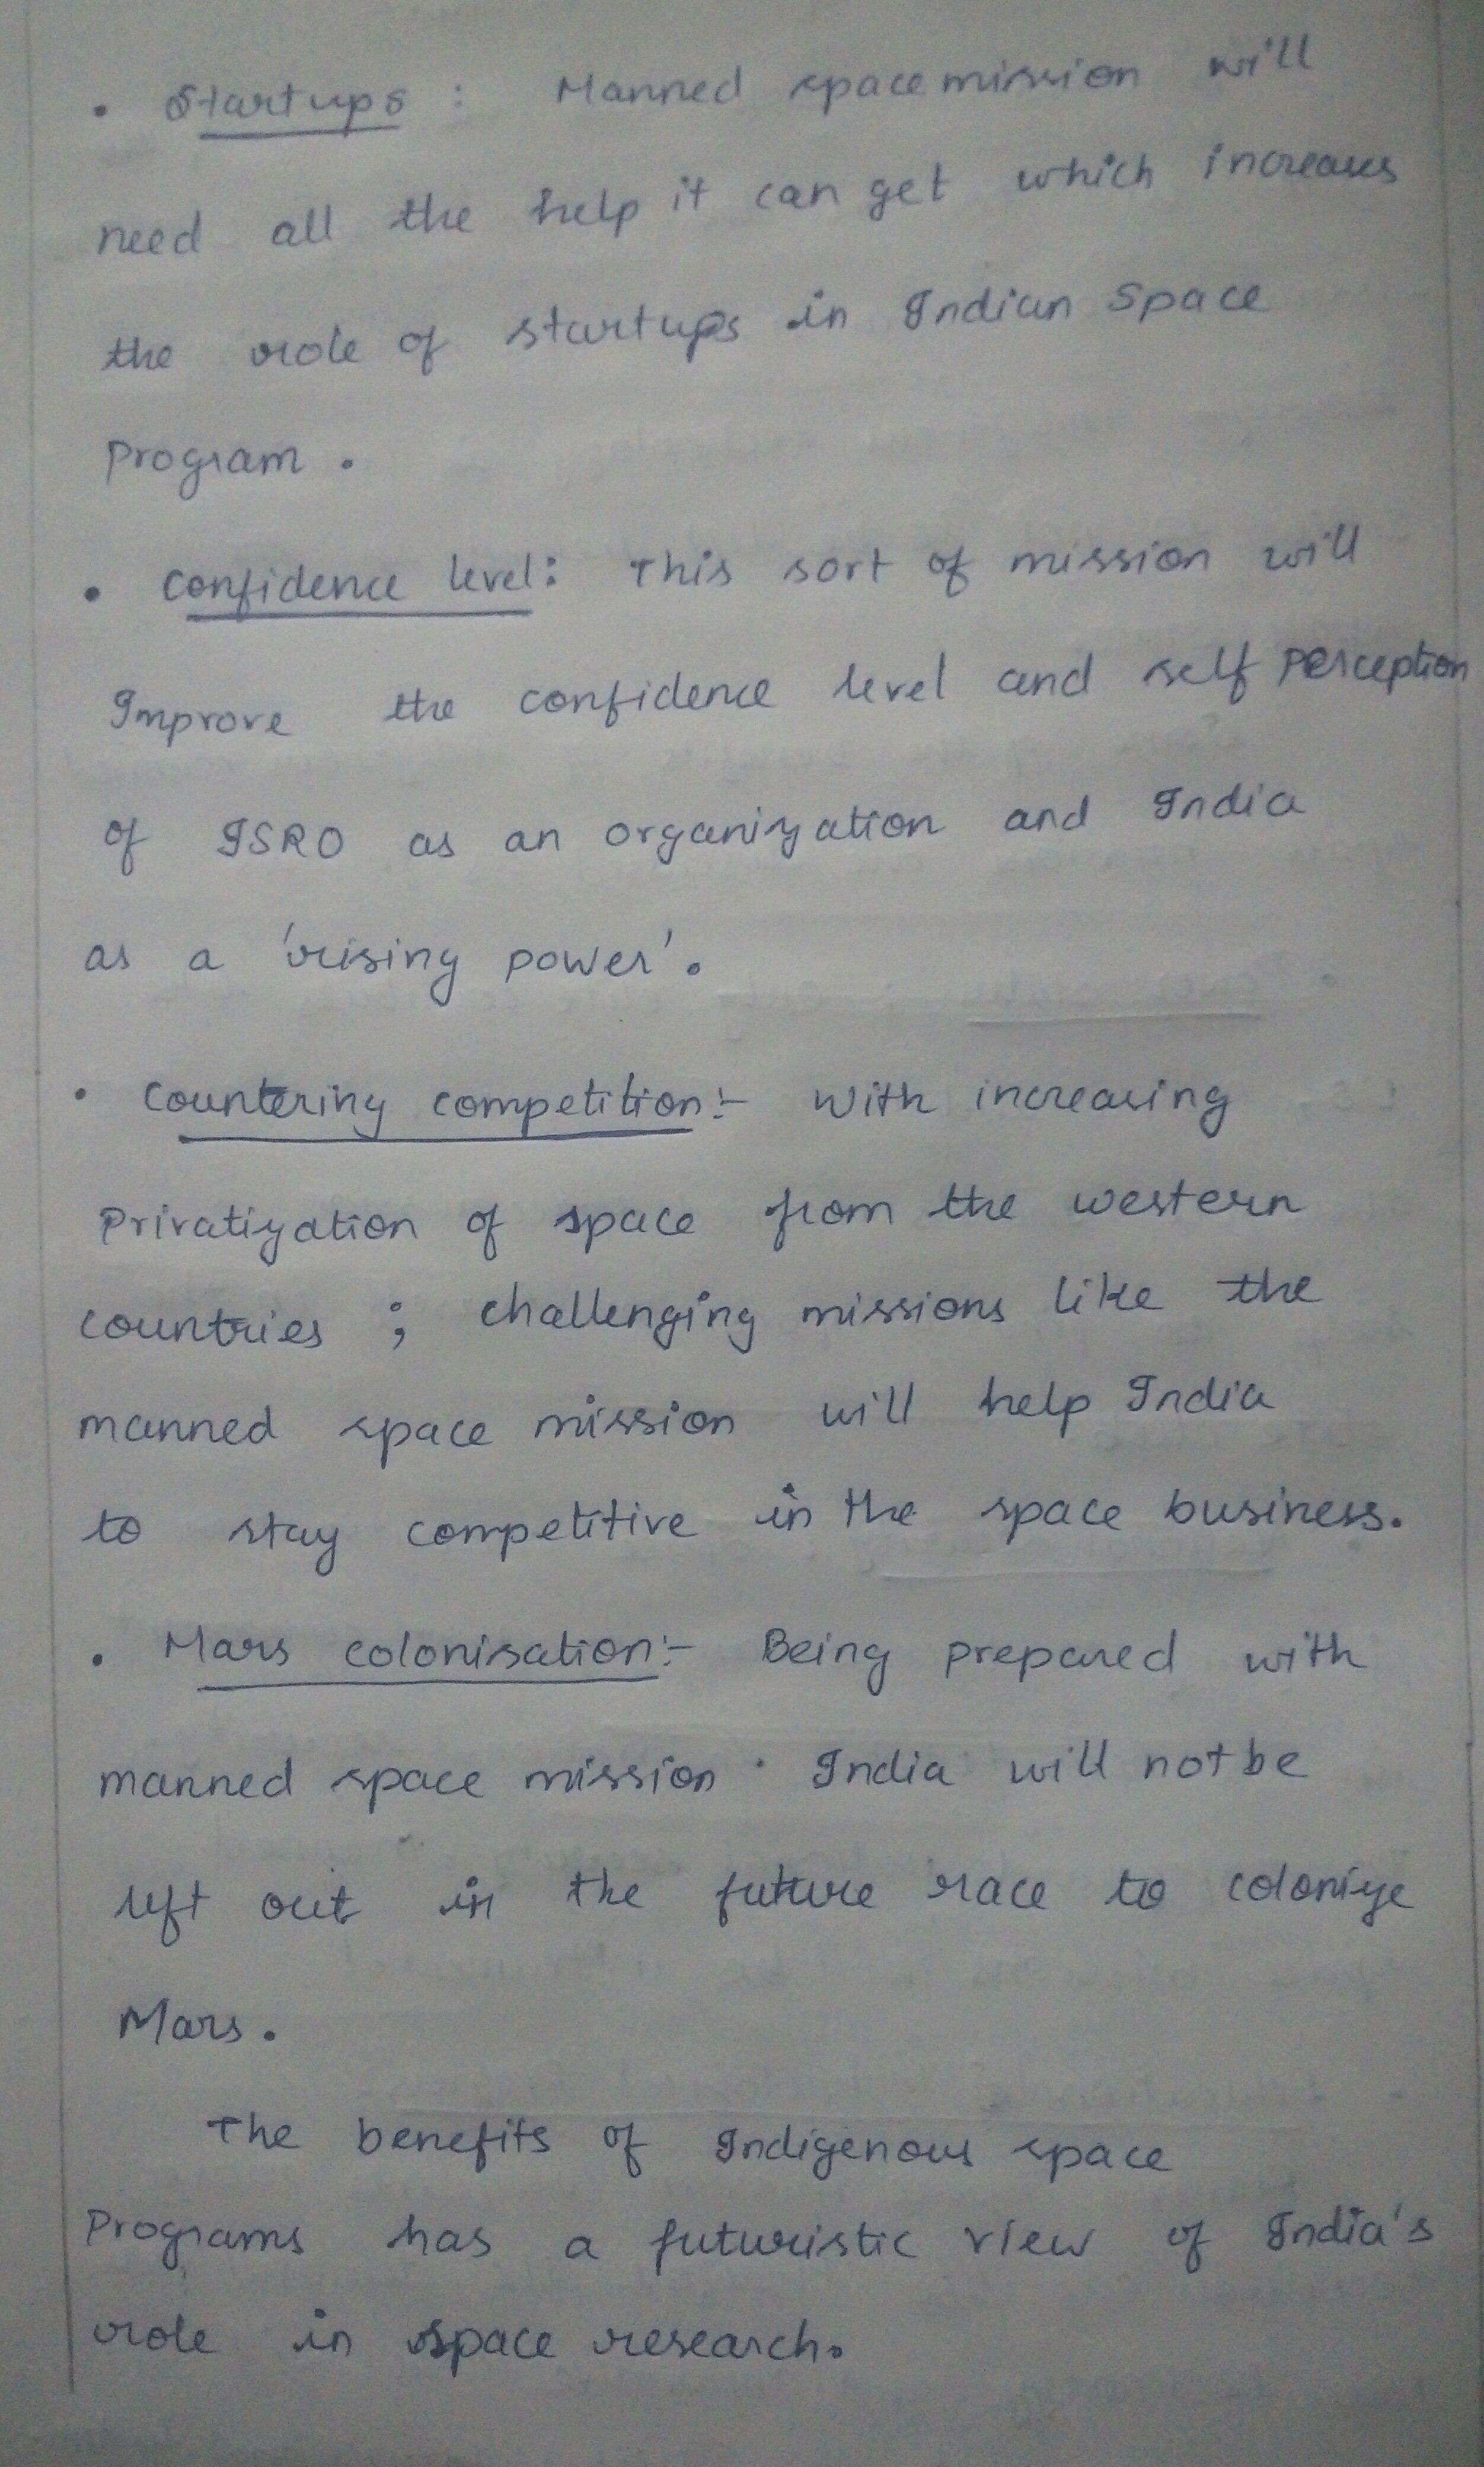 • Startups : Manned space mission will
need all the help it can get which increases
the role of startups in Indian Space
Program .
• Confidence level: This sort of mission will
Improve the confidence level and self perception
of ISRO as an organization and India
as a 'rising power'.
• Countering competition:- With increasing
Privatization of space from the western
countries ; challenging missions like the
manned space mission will help India
to stay competitive in the space business.
• Mars colonisation:- Being prepared with
manned space mission · India will not be
left out in the future race to colonize
Mars.
The benefits of Indigenous space
Programs has a futuristic view of India's
role in space research.